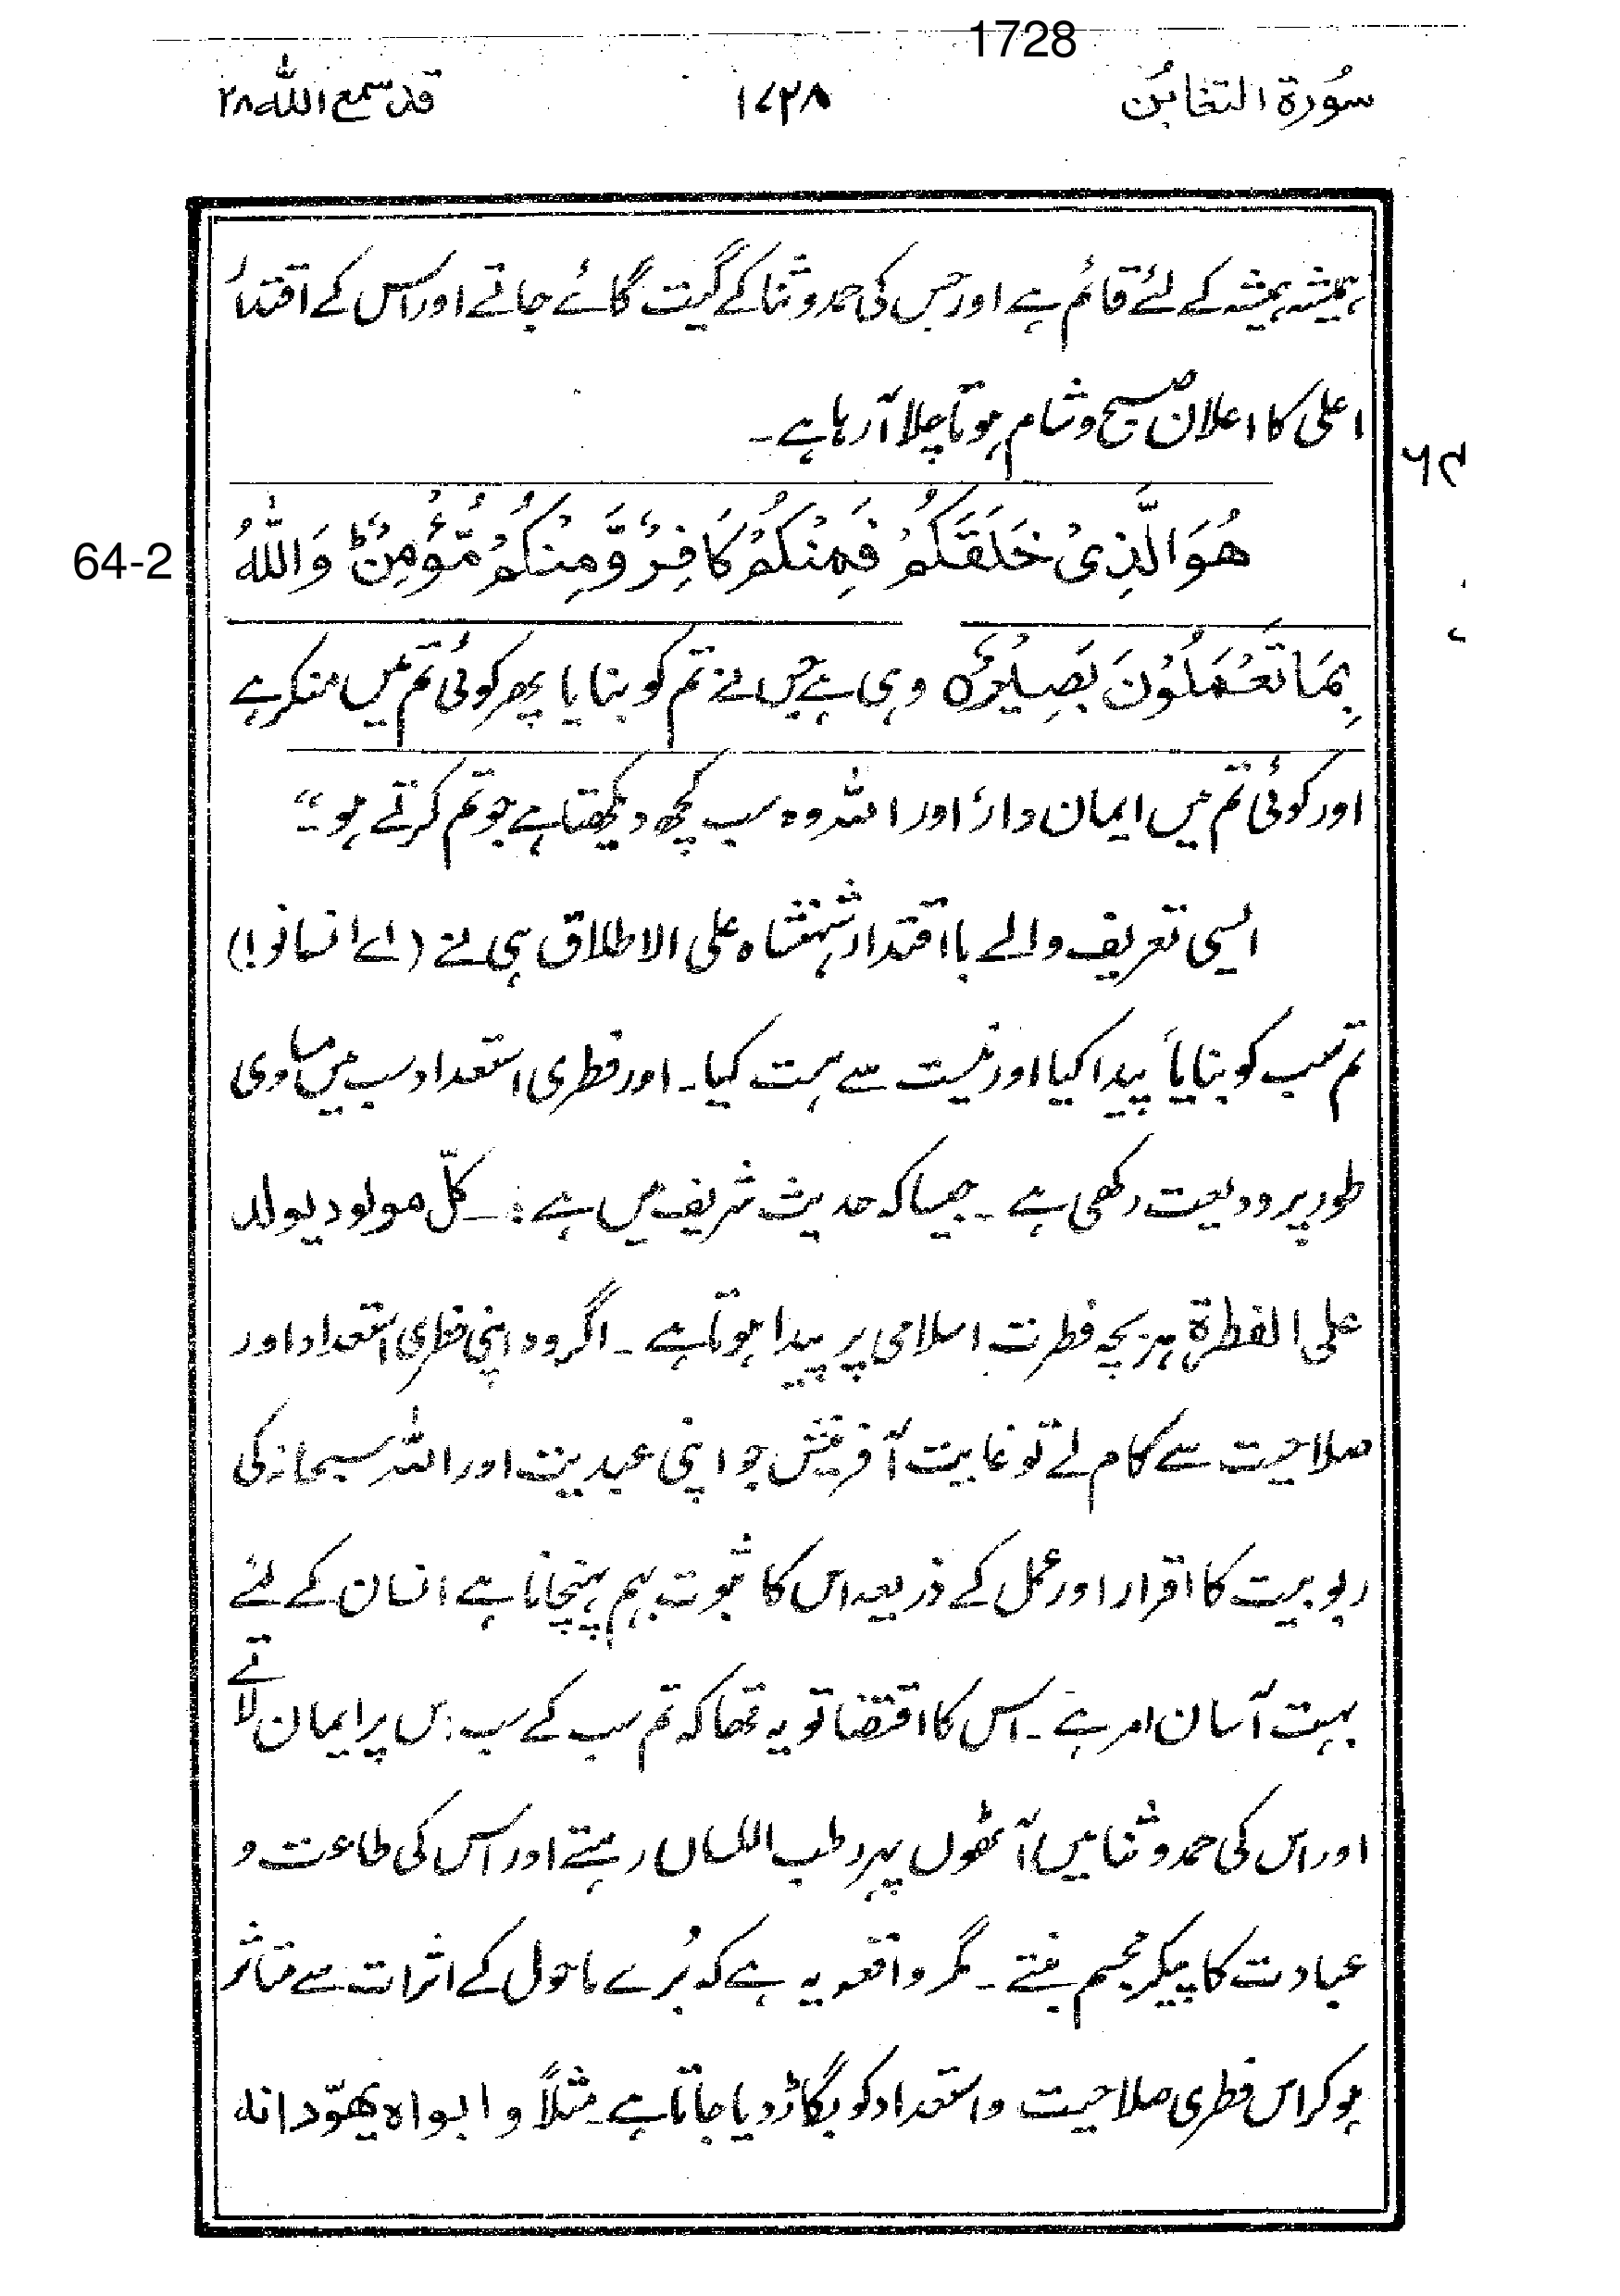 1728
سُورة التغابُن ۱۷۲۸ قد سمع اللہ ۲۸
ہمیشہ ہمیشہ کے لئے قائم ہے اور جس کی حمد و ثنا کے گیت گائے جاتے اور اس کے اقتدار
اعلی کا اعلان صبح و شام ہوتا چلا آرہا ہے۔
۶۴
64-2
هُوَ الَّذِیْ خَلَقَكُمْ فَمِنْكُمْ كَافِرٌ وَّمِنْكُمْ مُّؤْمِنٌ ؕ وَاللّٰهُ
بِمَا تَعْمَلُوْنَ بَصِیْرٌ ہ وہی ہے جس نے تم کو بنایا پھر کوئی تم میں منکر ہے
اور کوئی تم میں ایمان دار، اور اللہ وہ سب کچھ دیکھتا ہے جو تم کرتے ہو"۔
ایسی تعریف والے با اقتدار شہنشاہ علی الاطلاق ہی نے (اے انسانو!)
تم سب کو بنایا پیدا کیا اور نیست سے ہست کیا۔ اور فطری استعداد سب میں مساوی
طور پر ودیعت رکھی ہے۔ جیسا کہ حدیث شریف میں ہے :۔ کلّ مولود یولد
علی الفطرة ہر بچہ فطرت اسلامی پر پیدا ہوتا ہے۔ اگر وہ اپنی فطری استعداد اور
صلاحیت سے کام لے تو غایت آفرینش جو اپنی عبدیت اور اللہ سبحانہ کی
ربوبیت کا اقرار اور عمل کے ذریعہ اس کا ثبوت بہم پہنچانا ہے انسان کے لئے
بہت آسان امر ہے۔ اس کا اقتضا تو یہ تھا کہ تم سب کے سب اس پر ایمان لاتے
اور اس کی حمد و ثنا میں آٹھوں پہر رطب اللساں رہتے اور اس کی طاعت و
عبادت کا پیکر مجسم بنتے۔ مگر واقعہ یہ ہے کہ بُرے ماحول کے اثرات سے متاثر
ہو کر اس فطری صلاحیت و استعداد کو بگاڑ دیا جاتا ہے۔ مثلاً و ابواہ یھوّدانہ